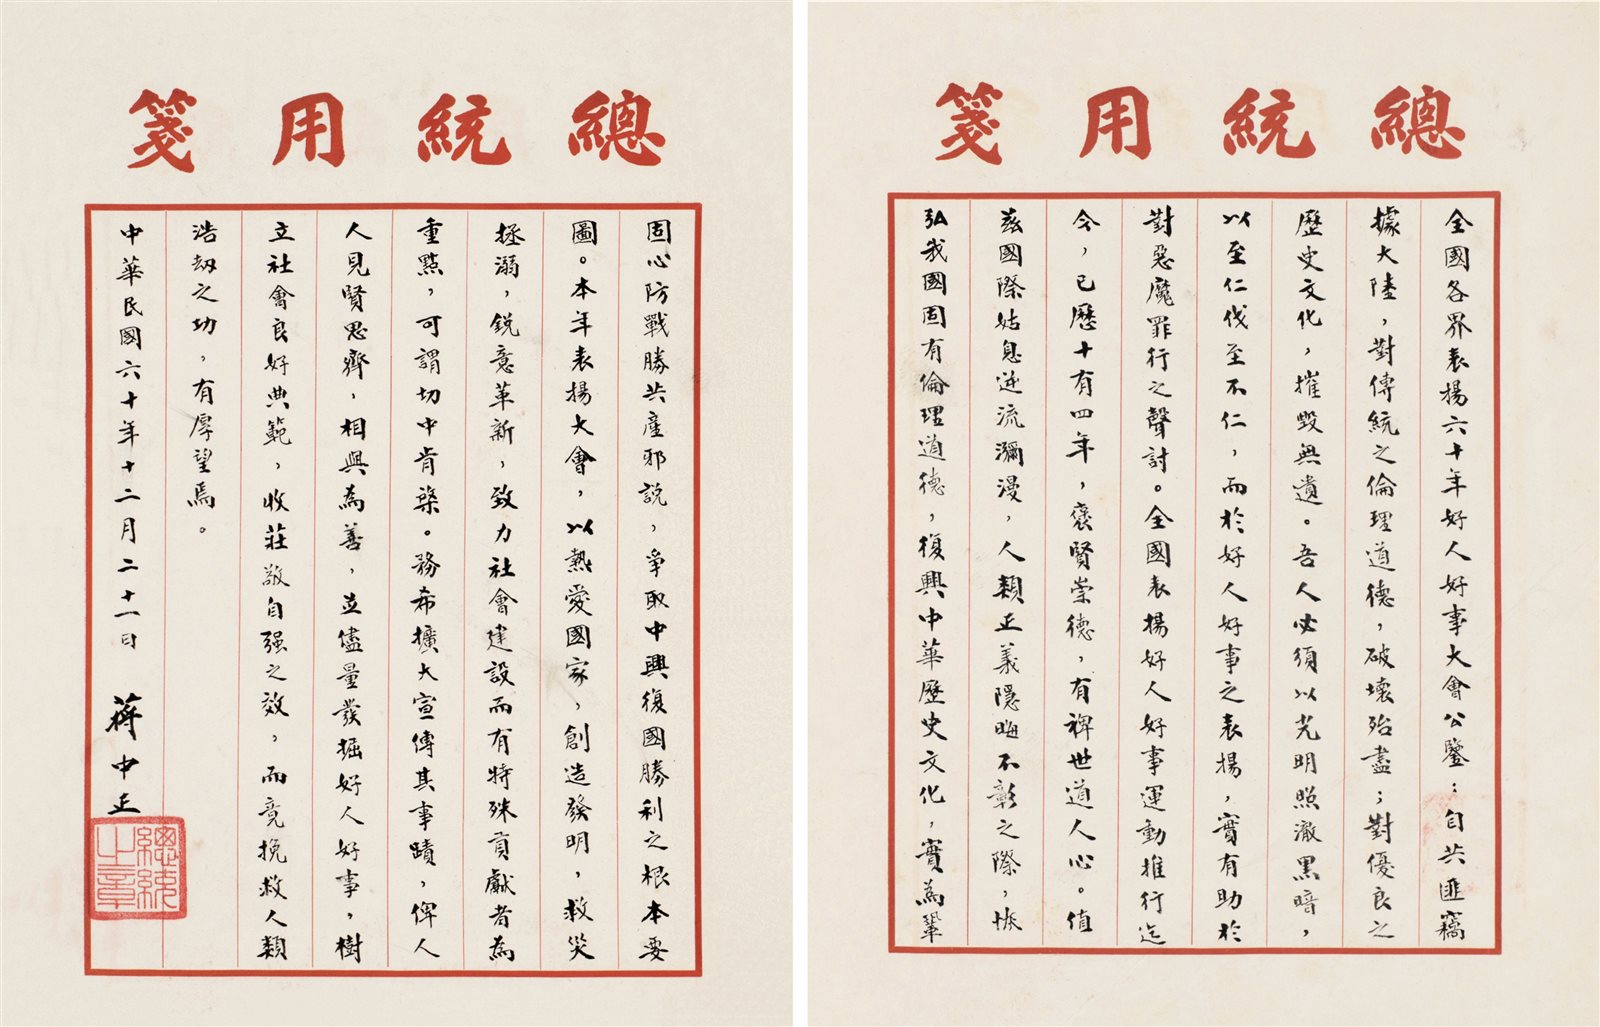 總統用箋
全國各界表揚六十年好人好事大會公鑒：自共匪竊
據大陸，對傳統之倫理道德，破壞殆盡；對優良之
歷史文化，摧毀無遺。吾人必須以光明照澈黑暗，
以至仁伐至不仁，而於好人好事之表揚，實有助於
對惡魔罪行之聲討。全國表揚好人好事運動推行迄
今，已歷十有四年，褒賢崇德，有裨世道人心。值
茲國際姑息逆流瀰漫，人類正義隱晦不彰之際，恢
弘我國固有倫理道德，復興中華歷史文化，實為鞏
總統用箋
固心防戰勝共產邪說，爭取中興復國勝利之根本要
圖。本年表揚大會，以熱愛國家，創造發明，救災
拯溺，銳意革新，致力社會建設而有特殊貢獻者為
重點，可謂切中肯綮。務希擴大宣傳其事蹟，俾人
人見賢思齊，相與為善，並儘量發掘好人好事，樹
立社會良好典範，收莊敬自強之效，而竟挽救人類
浩劫之功，有厚望焉。
中華民國六十年十二月二十一日 蔣中正
總統之章